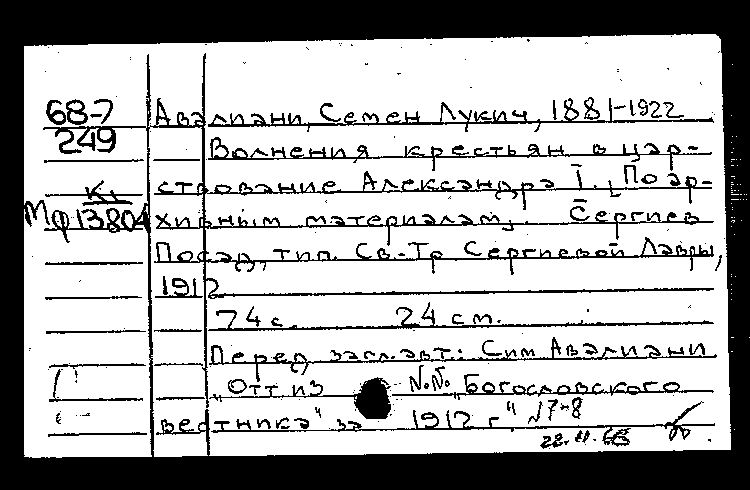 68-7
249
К1
Мф 13804
Авалиани, Семен Лукич, 1881-1922
Волнения крестьян в цар-
ствование Александра I. [По ар-
хивным материалам]. Сергиев
Посад, тип. Св.-Тр. Сергиевой Лавры,
1912
74 с. 24 см.
Перед заглавт.: Сим Авалиани
"Отт из №№ "Богословского
вестника" за 1912 г." №7-8